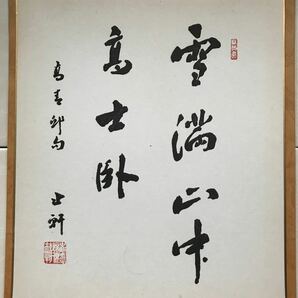 雪満山中
高士臥
高青邱句